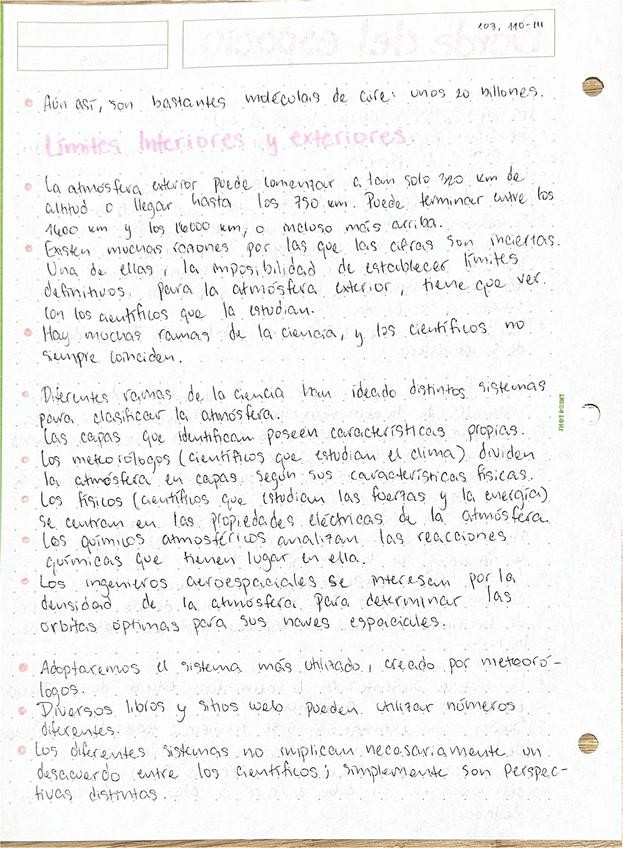 103, 110-111
• Aún así, son bastantes moléculas de aire: unos 20 billones.
Límites Interiores y exteriores
• La atmósfera exterior puede comenzar a tan solo 320 km de
altitud o llegar hasta los 750 km. Puede terminar entre los
1400 km y los 16000 km, o incluso más arriba.
• Existen muchas razones por las que las cifras son inciertas.
Una de ellas, la imposibilidad de establecer límites
definitivos para la atmósfera exterior, tiene que ver
con los científicos que la estudian.
• Hay muchas ramas de la ciencia, y los científicos no
siempre coinciden.
• Diferentes ramas de la ciencia han ideado distintos sistemas
para clasificar la atmósfera.
Las capas que identifican poseen características propias.
• Los meteorólogos (científicos que estudian el clima) dividen
la atmósfera en capas según sus características físicas.
• Los físicos (científicos que estudian las fuerzas y la energía)
se centran en las propiedades eléctricas de la atmósfera.
• Los químicos atmosféricos analizan las reacciones
químicas que tienen lugar en ella.
• Los ingenieros aeroespaciales se interesan por la
densidad de la atmósfera para determinar las
orbitas óptimas para sus naves espaciales.
• Adoptaremos el sistema más utilizado, creado por meteoró-
logos.
• Diversos libros y sitios web pueden utilizar números
diferentes.
• Los diferentes sistemas no implican necesariamente un
desacuerdo entre los científicos; simplemente son perspec-
tivas distintas.